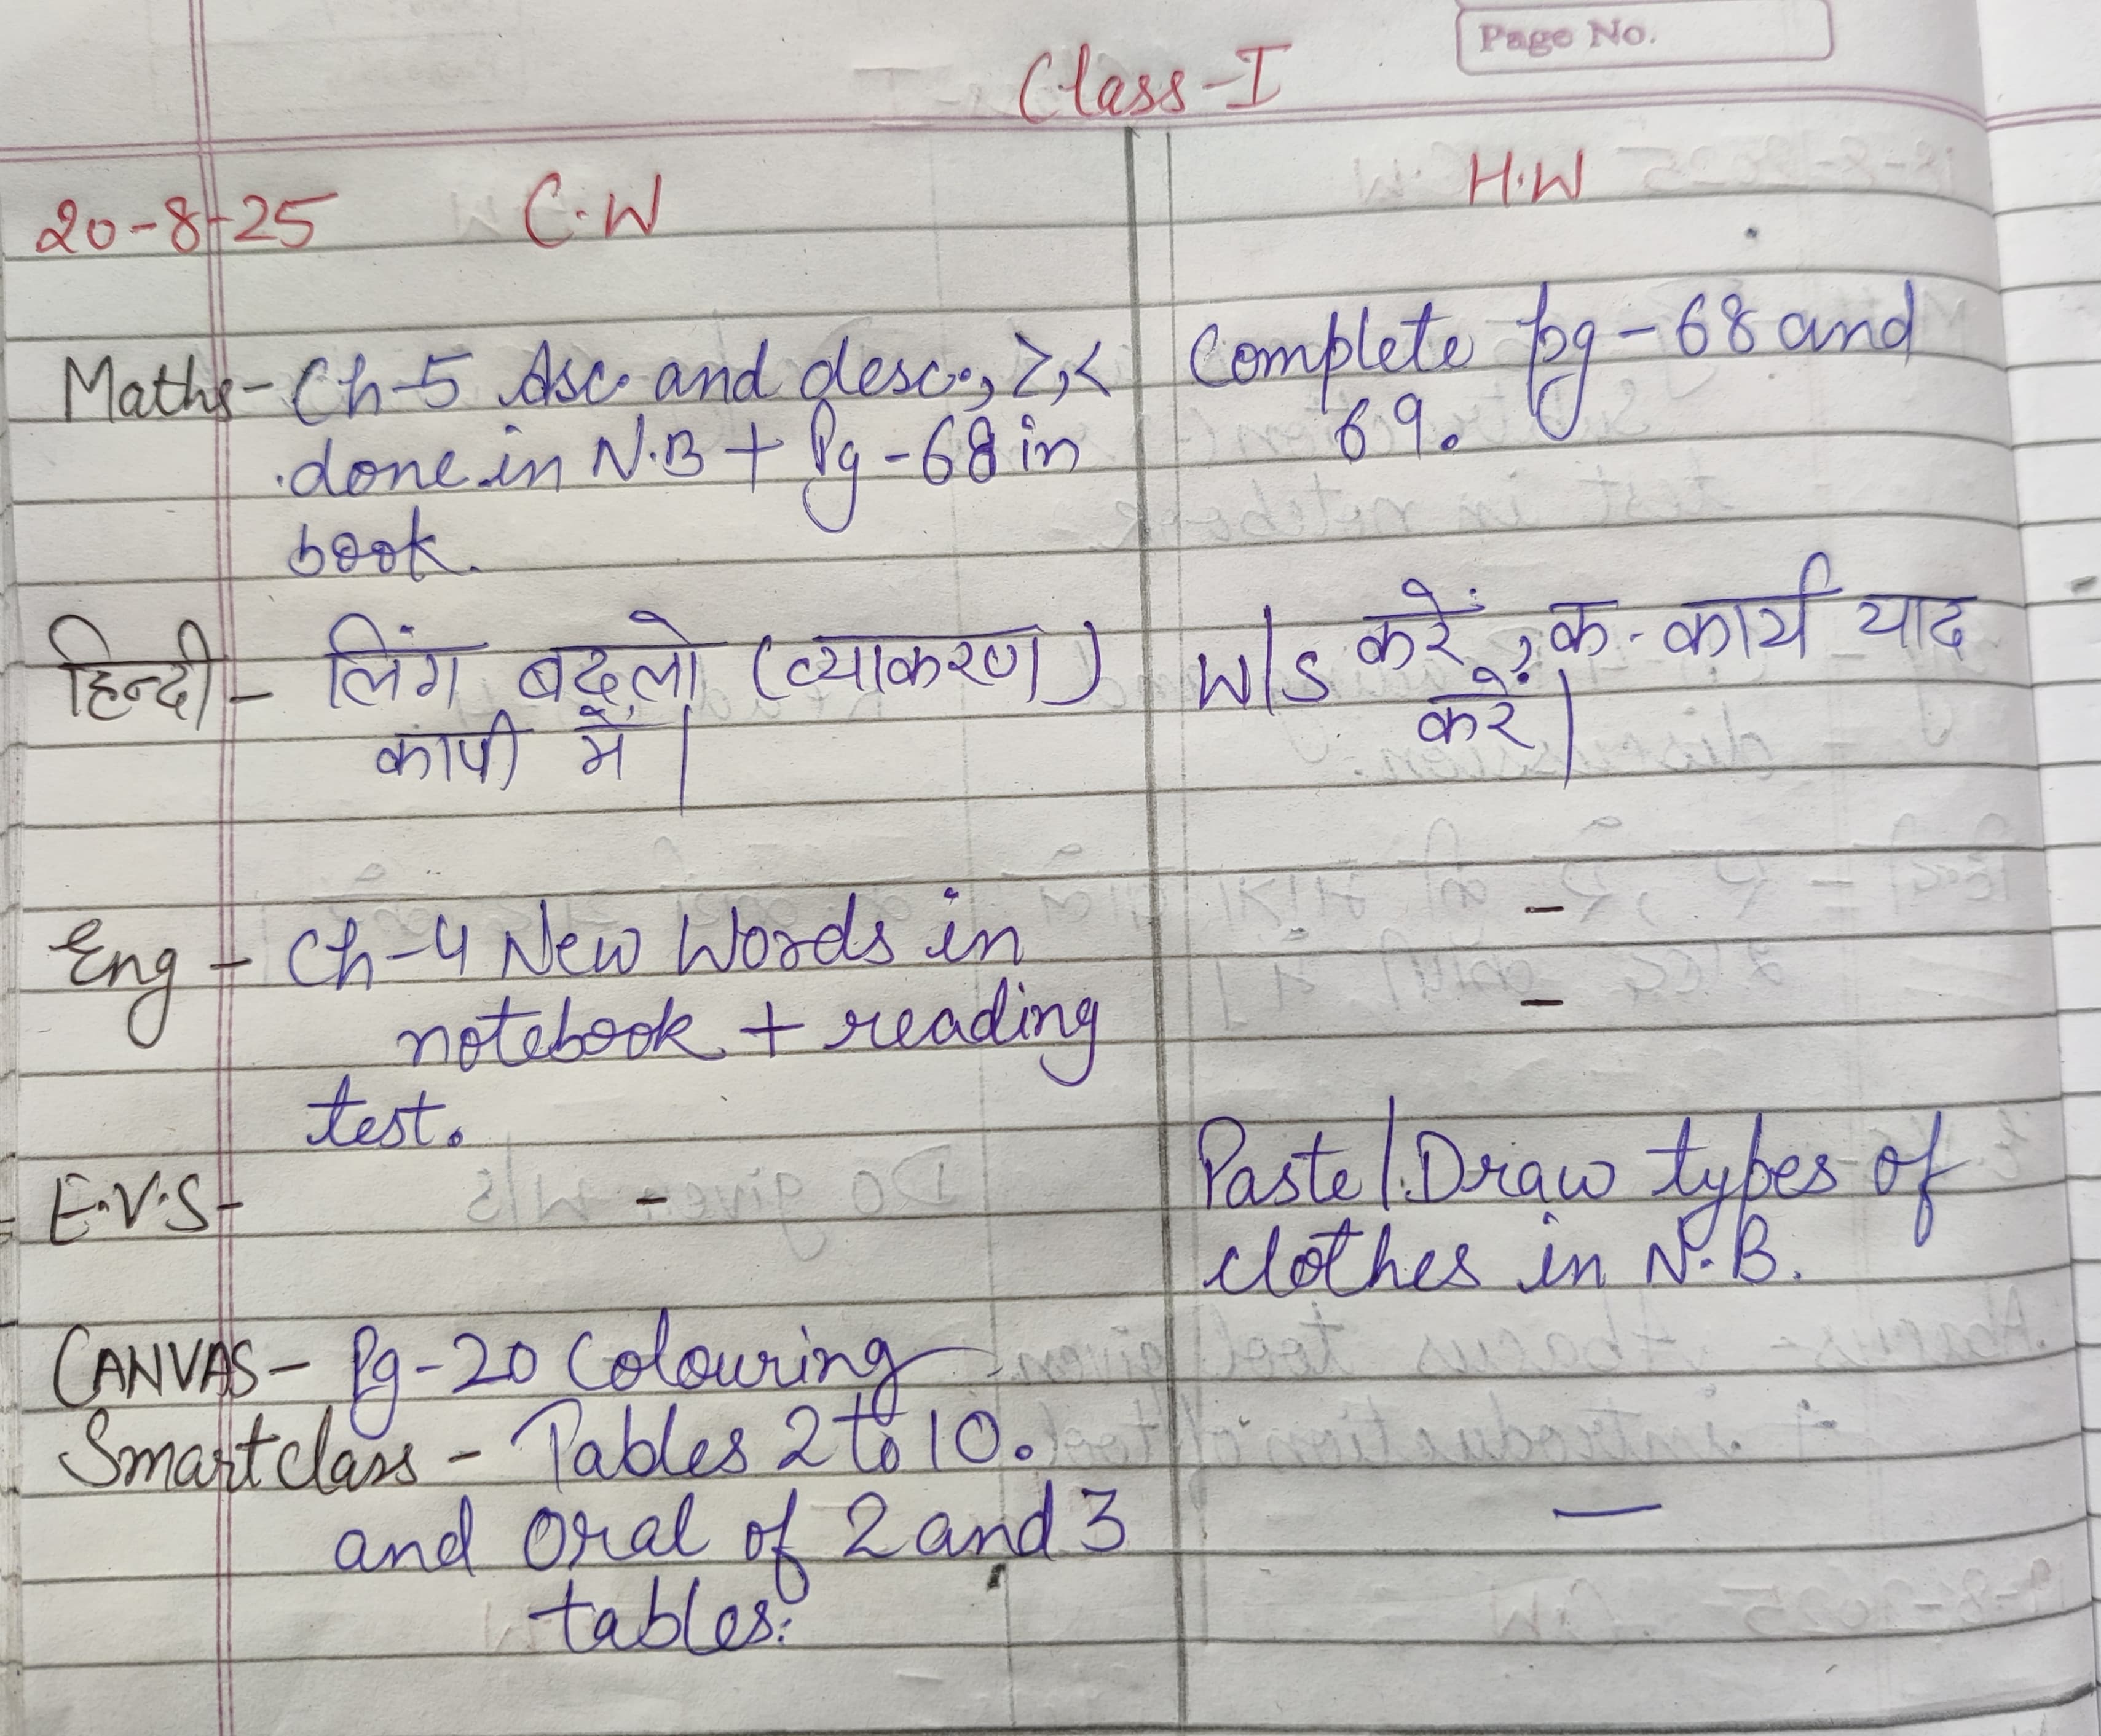 Page No.
Class-I
20-8-25 C.W H.W
Maths- Ch-5 Asc. and desc., >,< Complete pg-68 and
done in N.B + Pg-68 in 69.
book.
हिन्दी- लिंग बदलो (व्याकरण) W/S करें, क.कार्य याद
कापी में। करें।
Eng - Ch-4 New Words in -
notebook + reading -
test.
E.V.S- - Paste/Draw types of
clothes in N.B.
CANVAS- Pg-20 Colouring
Smartclass - Tables 2 to 10.
and Oral of 2 and 3 —
tables.